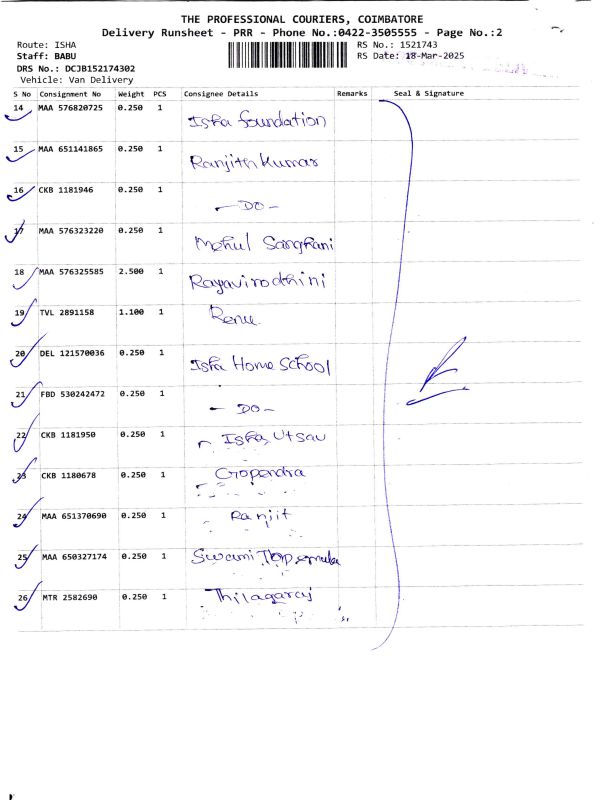 THE PROFESSIONAL COURIERS, COIMBATORE
Delivery Runsheet - PRR - Phone No.:0422-3505555 - Page No.:2
Route: ISHA RS No.: 1521743
Staff: BABU RS Date: 18-Mar-2025
DRS No.: DCJB152174302
Vehicle: Van Delivery
S No Consignment No Weight PCS Consignee Details Remarks Seal & Signature
14 MAA 576820725 0.250 1 Isha foundation
15 MAA 651141865 0.250 1 Ranjith Kumar
16 CKB 1181946 0.250 1 - DO -
17 MAA 576323220 0.250 1 Mehul Sanghani
18 MAA 576325585 2.500 1 Rayavirodhini
19 TVL 2891158 1.100 1 Renu
20 DEL 121570036 0.250 1 Isha Home School
21 FBD 530242472 0.250 1 - DO -
22 CKB 1181950 0.250 1 Isha Utsav
23 CKB 1180678 0.250 1
24 MAA 651370690 0.250 1 Ranjit
25 MAA 650327174 0.250 1 Swami
26 MTR 2582690 0.250 1 Thilagaraj